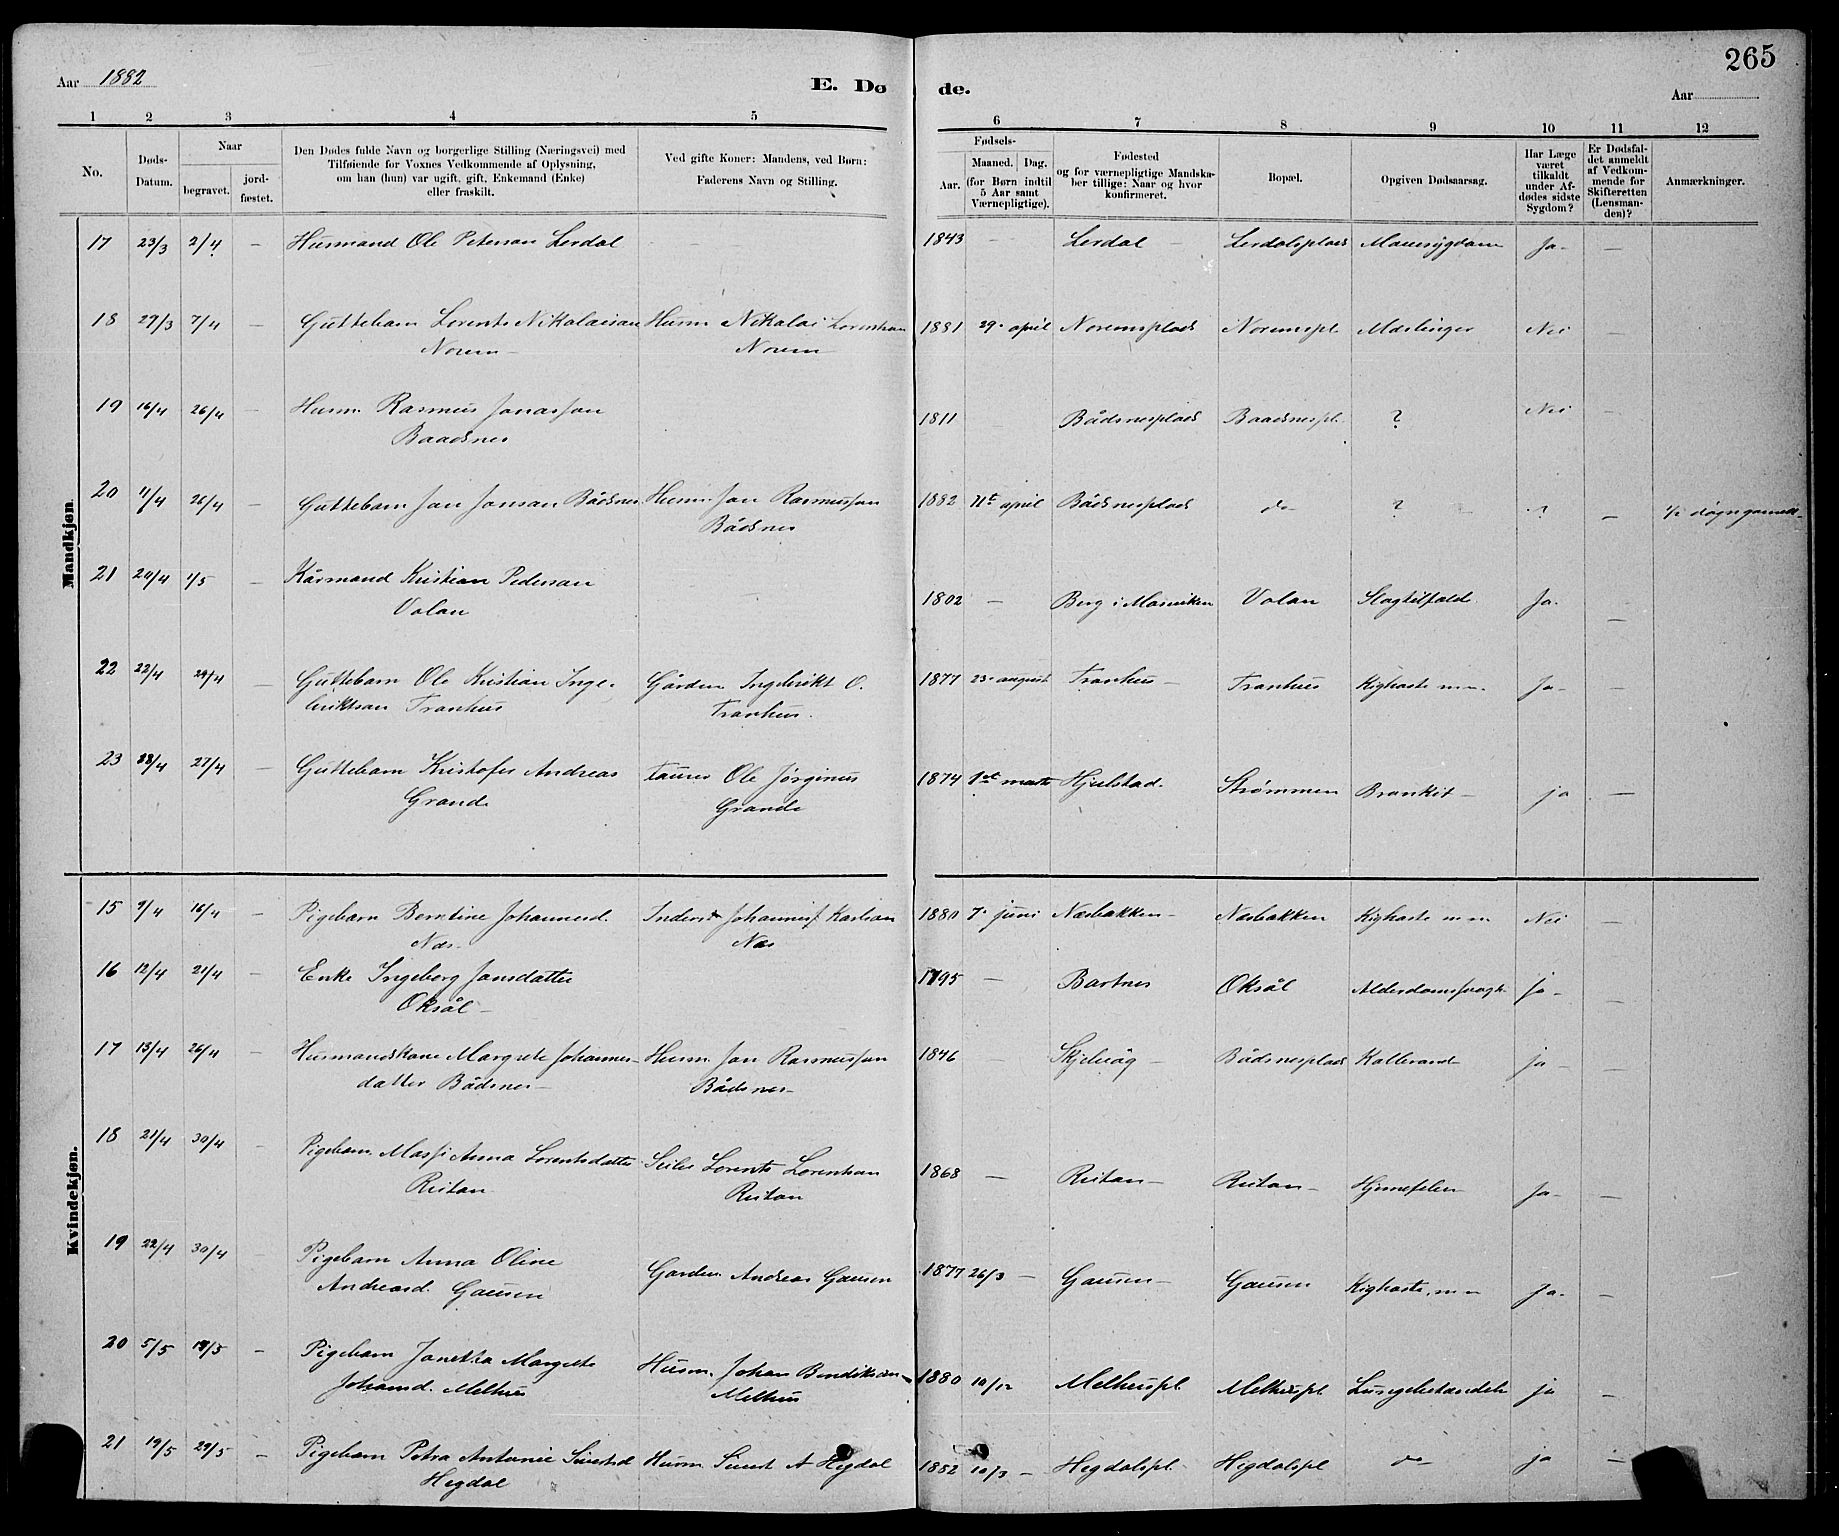 265
Aar 1882
E. Dø
de.
Aar
1 2 3 4 5 6 7 8 9 10 11 12
No.
Døds-Datum.
Naar
begravet.
jord-fæstet.
Den Dødes fulde Navn og borgerlige Stilling (Næringsvei) med
Tilføiende for Voxnes Vedkommende af Oplysning,
om han (hun) var ugift, gift, Enkemand (Enke)
eller fraskilt.
Ved gifte Koner: Mandens, ved Børn:
Faderens Navn og Stilling.
Fødsels-
Aar.
Maaned. Dag.
(for Børn indtil
5 Aar samt
Værnepligtige).
Fødested
og for værnepligtige Mandska-
ber tillige: Naar og hvor
konfirmeret.
Bopæl.
Opgiven Dødsaarsag.
Har Læge
været
tilkaldt
under Af-
dødes sidste
Sygdom?
Er Dødsfal-
det anmeldt
af Vedkom-
mende for
Skifteretten
(Lensman-
den)?
Anmærkninger.
Mandkjøn.
17 23/3 2/4 – Husmand Ole Peterson Lerdal 1843 – Lerdal – Lerdalsplads Mavesygdom Ja – –
18 29/3 7/4 – Guttebarn Lorents Nikolaisan Husm Nikolai Lorentsan 1881 29. april Noremsplads Noremspl Mæslinger Nei –
Norem – Norem
19 16/4 26/4 – Husm. Rasmus Jonasson 1811 – Bådsnesplads Baadsnespl. ? Nei –
Baadsnes
20 11/4 26/4 – Guttebarn Jon Jonsan Bådsnes Husm. Jon Rasmusson 1882 11te april Bådsnesplads do ? ? – 1/2 døgn gammelt
Bådsnes
21 20/4 1/5 – Kårmand Kristian Pedersan 1802 – Berg i Mosviken Volan Slagtilfælde Ja. –
Volan
22 22/4 29/4 – Guttebarn Ole Kristian Inge- Gården Ingebrikt O. 1877 23. august Tranhus – Tranhus Kighoste m.m. Ja – –
briktsan Tranhus Tranhus.
23 23/4 27/4 – Guttebarn Kristofer Andreas Ole Jørginus 1874 1ste marts Hjelstad. Strømmen Bronkit – ja –
Grande Grande
Kvindekjøn.
15 9/4 16/4 – Pigebarn Berntine Johannesd. Johannes Karlsan 1880 7. juni Næsbakken – Næsbakken Kighoste m m Nei –
Næs. Næs
16 12/4 21/4 – Enke Ingeborg Jonsdatter 1795 – Bartnes Oksål Alderdomssvagh. ja – –
Oksål –
17 13/4 26/4 – Husmandskone Margrete Johannes- Husm. Jon Rasmusson 1846 – Skjelvåg – Bådsnesplads Koldbrand ja – –
datter Bådsnes – Bådsnes –
18 21/4 30/4 – Pigebarn Massi Anna Lorentsdatter Lorents Lorentsan 1868 – Reitan – Reitan – Ja – –
Reitan Reitan
19 22/4 30/4 Pigebarn Anna Oline Gården Andreas Gausen 1877 26/3 – Gausen – Gausen Kighoste, m m Ja – –
Andreasd. Gausen
20 5/5 – Pigebarn Janetta Margrete Husm. Johan Bendiksan 1880 10/12 Melhuspl Melhuspl Lungebetændelse ja –
Johansd. Melhus Melhus
21 19/5 29/5 – Pigebarn Petra Antonie Sivertsd Husm Sivert A Hegdal 1882 10/3 – Hegdalspl. Hegdalspl do ja –
Hegdal